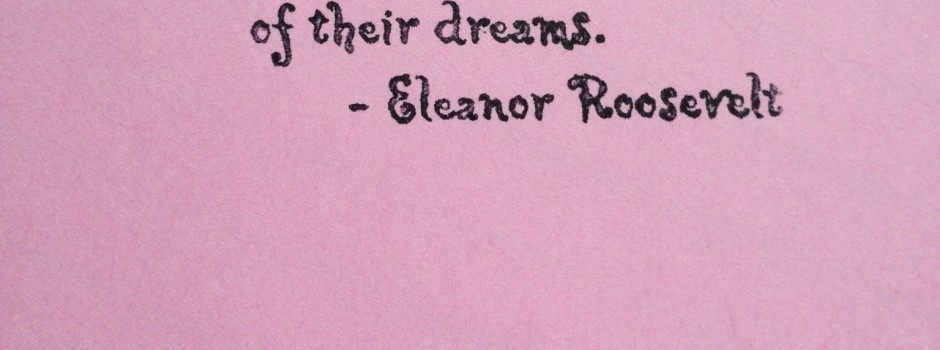 of their dreams.
- Eleanor Roosevelt